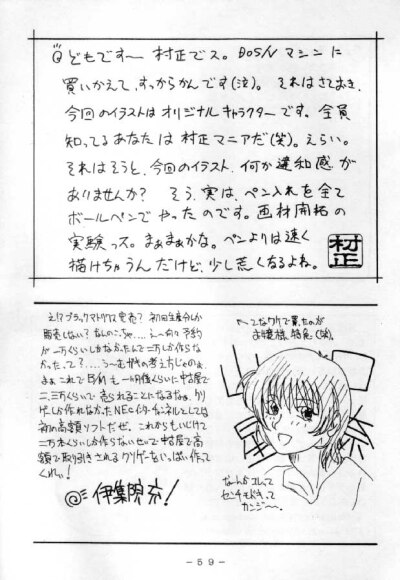 どもです〜 村正でス。DOS/V マシンに
買いかえて、すっからかんです(泣)。それはさておき、
今回のイラストは オリジナルキャラクターです。全員
知ってるあなたは 村正マニアだ(笑)。えらい。
それはそうと、今回のイラスト、何か違和感が
ありませんか? そう、実は、ペン入れを全て
ボールペンで やったのです。画材開拓の
実験っス。まぁまぁかな。ペンよりは速く
描けちゃうんだけど、少し荒くなるよね。
村正
え!?ブラックマトリクス完売? 初回生産分しか
販売しない? なんのこっちゃ....え〜何々予約
が一万くらいしかなかったんで二万しか作らな
かった って?....う〜むがきの考えじゃのぉ。
まぁこれで 一ヶ月後くらいに中古屋で
二、三万くらいで 売られることになるなぁ。クソ
ゲーしか作れなかったNECインターチャネルとしては
初の高額ソフトだぜ。これからもいじけて
二万本くらいしか作らないせいで中古屋で高
額で取り引きされるクソゲーをいっぱい作って
くれぃ!
伊集院 充!
こなワケで買ったのが
お嬢様特急(笑)。
なんかコレって
センチもどきって
カンジ〜。
－59－